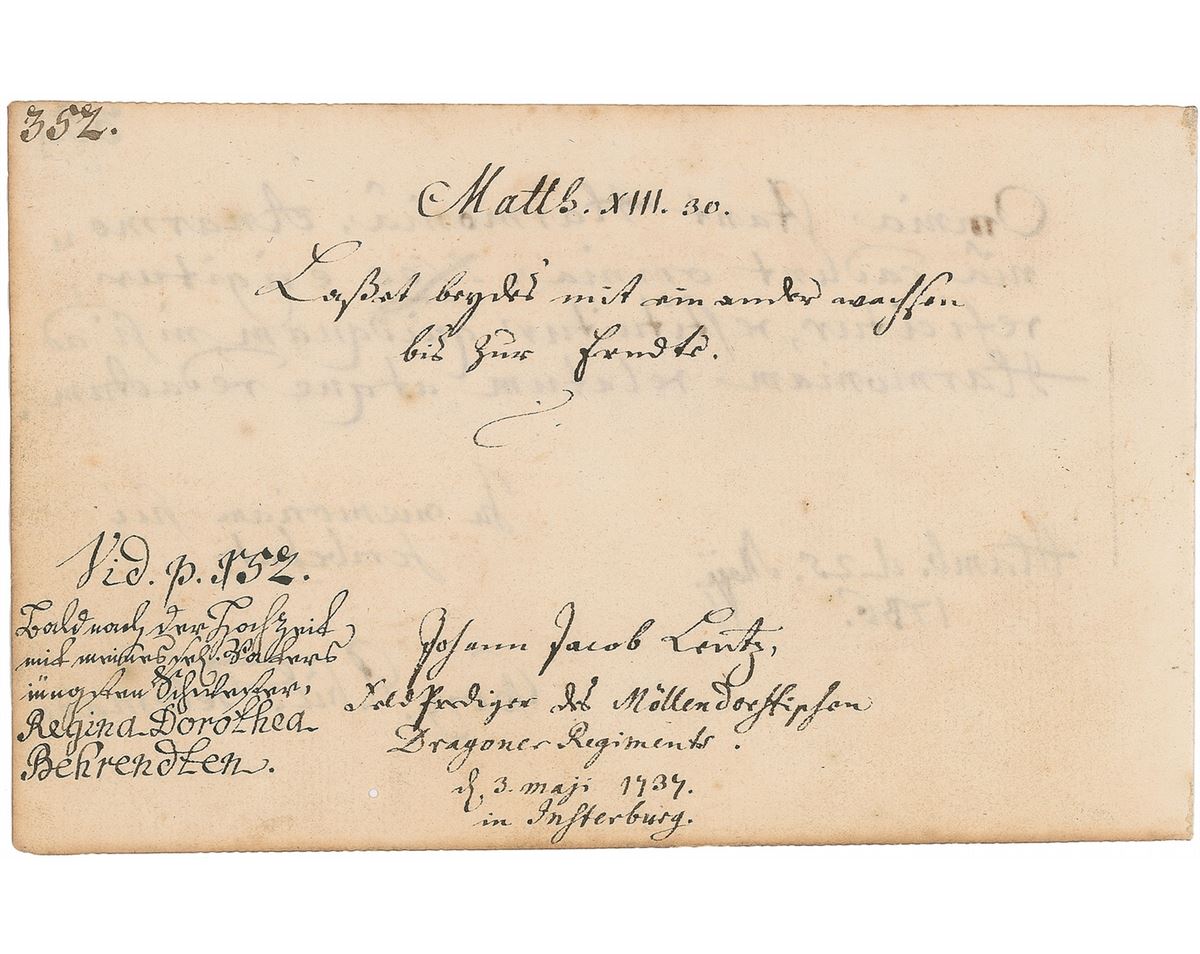 352.
Matth. XIII. 30.
Laßet beydes mit ein ander wachsen
bis zur Erndte.
Vid. p. 152.
Bald nach der Hochzeit
mit meines sel. Vatters
jüngsten Schwester,
Regina Dorothea
Behrendten.
Johann Jacob Lentz,
FeldPrediger des Möllendorffischen
Dragoner Regiments.
d. 3. maji 1737.
in Insterburg.